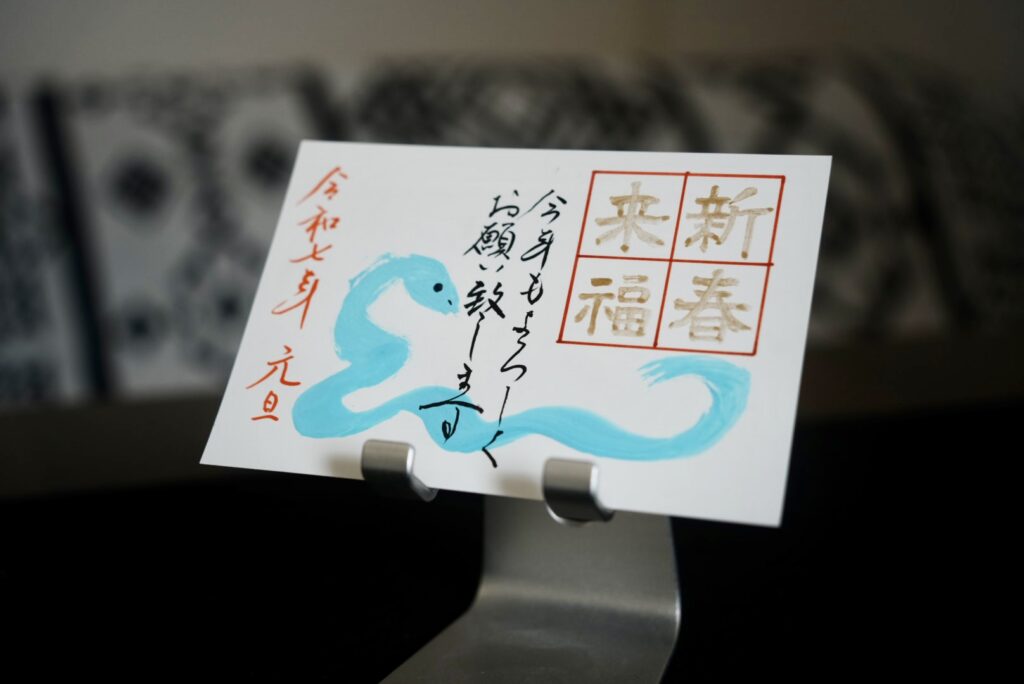 新春
来福
今年もよろしく
お願い致します
令和七年 元旦